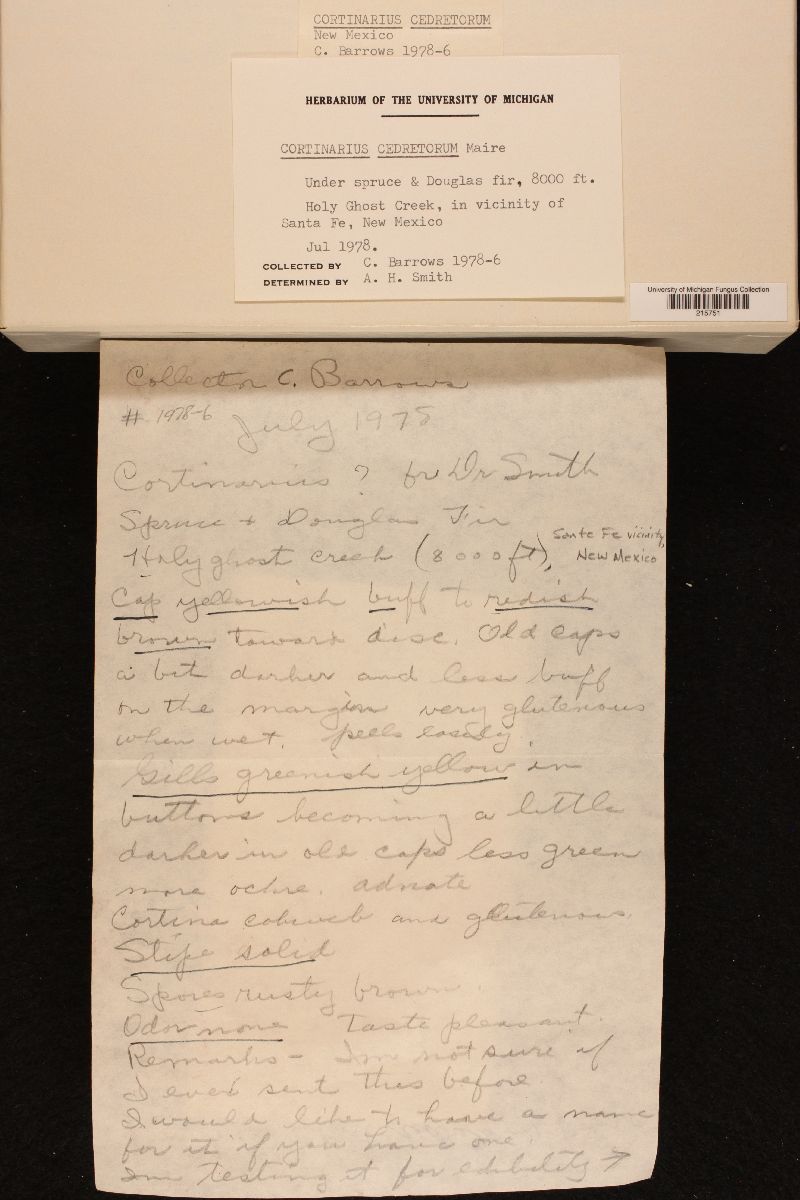 CORTINARIUS CEDRETORUM
New Mexico
C. Barrows 1978-6
HERBARIUM OF THE UNIVERSITY OF MICHIGAN
CORTINARIUS CEDRETORUM Maire
Under spruce & Douglas fir, 8000 ft.
Holy Ghost Creek, in vicinity of
Santa Fe, New Mexico
Jul 1978.
COLLECTED BY C. Barrows 1978-6
DETERMINED BY A. H. Smith
University of Michigan Fungus Collection
215751
Collector C. Barrows
# 1978-6 July 1978
Cortinarius ? for Dr Smith
Spruce + Douglas Fir
Holy ghost creek (8000ft), Santa Fe vicinity, New Mexico
Cap yellowish buff to redish
brown toward disc. Old caps
a bit darker and less buff
on the margin very glutenous
when wet. peels easily.
Gills greenish yellow in
buttons becoming a little
darker in old caps less green
more ochre. adnate
Cortina cobweb and glutenous.
Stipe solid
Spores rusty brown.
Odor none Taste pleasant.
Remarks - Im not sure if
I ever sent this before.
I would like to have a name
for it if you have one.
Im testing it for edibility →